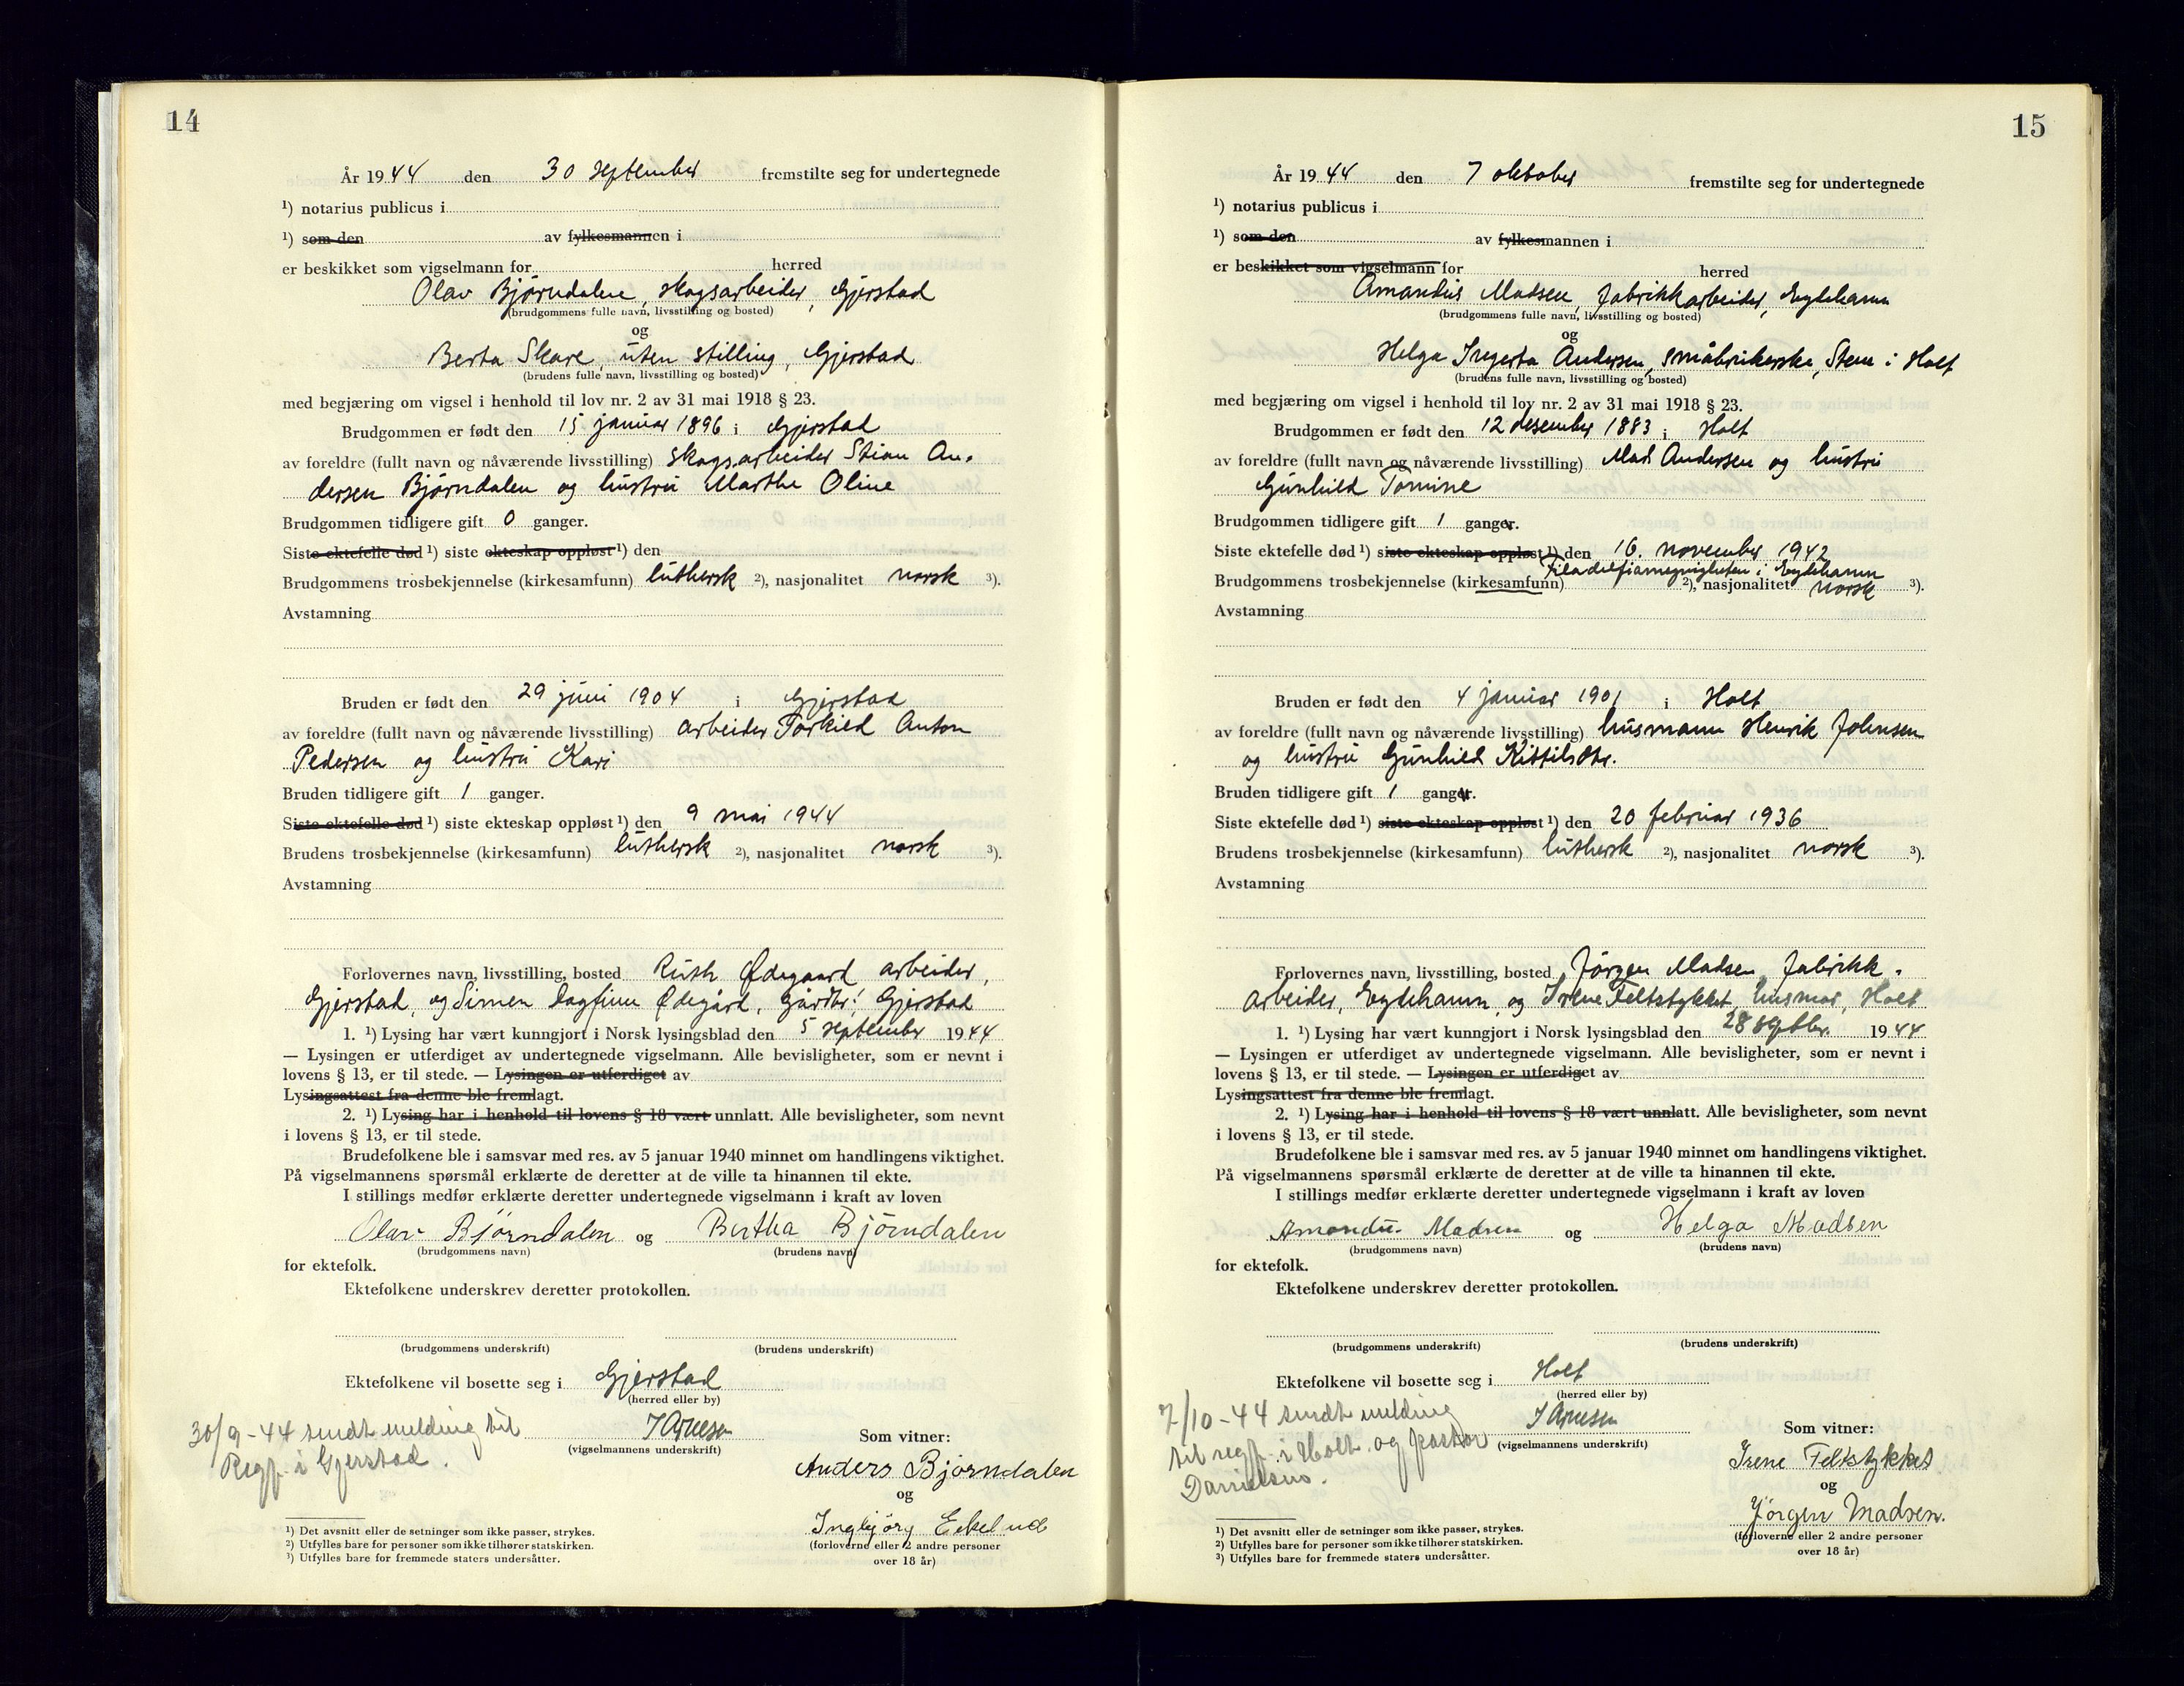 14
År 1944 den 30 september fremstilte seg for undertegnede
¹) notarius publicus i
¹) som den av fylkesmannen i
er beskikket som vigselmann for herred
Olav Bjørndalen, skogsarbeider, Gjerstad
(brudgommens fulle navn, livsstilling og bosted)
og
Berta Skare, uten stilling, Gjerstad
(brudens fulle navn, livsstilling og bosted)
med begjæring om vigsel i henhold til lov nr. 2 av 31 mai 1918 § 23.
Brudgommen er født den 15 januar 1896 i Gjerstad
av foreldre (fullt navn og nåværende livsstilling) skogsarbeider Stian An-
dersen Bjørndalen og hustru Marthe Oline
Brudgommen tidligere gift 0 ganger.
Siste ektefelle død ¹) siste ekteskap oppløst ¹) den
Brudgommens trosbekjennelse (kirkesamfunn) luthersk ²), nasjonalitet norsk ³).
Avstamning
Bruden er født den 29 juni 1904 i Gjerstad
av foreldre (fullt navn og nåværende livsstilling) arbeider Torkild Anton
Pedersen og hustru Kari
Bruden tidligere gift 1 ganger.
Siste ektefelle død ¹) siste ekteskap oppløst ¹) den 9 mai 1944
Brudens trosbekjennelse (kirkesamfunn) luthersk ²), nasjonalitet norsk ³).
Avstamning
Forlovernes navn, livsstilling, bosted Ruth Ødegaard arbeider,
Gjerstad, og Simen Dagfinn Ødegård, gårdbr. Gjerstad
1. ¹) Lysing har vært kunngjort i Norsk lysingsblad den 5 september 1944
— Lysingen er utferdiget av undertegnede vigselmann. Alle bevisligheter, som er nevnt i
lovens § 13, er til stede. — Lysingen er utferdiget av
Lysingsattest fra denne ble fremlagt.
2. ¹) Lysing har i henhold til lovens § 18 vært unnlatt. Alle bevisligheter, som nevnt
i lovens § 13, er til stede.
Brudefolkene ble i samsvar med res. av 5 januar 1940 minnet om handlingens viktighet.
På vigselmannens spørsmål erklærte de deretter at de ville ta hinannen til ekte.
I stillings medfør erklærte deretter undertegnede vigselmann i kraft av loven
Olav Bjørndalen og Bertha Bjørndalen
(brudgommens navn) (brudens navn)
for ektefolk.
Ektefolkene underskrev deretter protokollen.
(brudgommens underskrift) (brudens underskrift)
Ektefolkene vil bosette seg i Gjerstad
(herred eller by)
30/9-44 sendt melding til
Regf. i Gjerstad.
J Arnesen
(vigselmannens underskrift)
Som vitner:
Anders Bjørndalen
og
Ingbjørg Eikelund
(forloverne eller 2 andre personer
over 18 år)
¹) Det avsnitt eller de setninger som ikke passer, strykes.
²) Utfylles bare for personer som ikke tilhører statskirken.
³) Utfylles bare for fremmede staters undersåtter.
15
År 1944 den 7 oktober fremstilte seg for undertegnede
¹) notarius publicus i
¹) som den av fylkesmannen i
er beskikket som vigselmann for herred
Amandus Madsen, fabrikkarbeider, Eydehamn
(brudgommens fulle navn, livsstilling og bosted)
og
Helga Ingerta Andersen, småbrukerske, Stene i Holt
(brudens fulle navn, livsstilling og bosted)
med begjæring om vigsel i henhold til lov nr. 2 av 31 mai 1918 § 23.
Brudgommen er født den 12 desember 1883 i Holt
av foreldre (fullt navn og nåværende livsstilling) Mads Andersen og hustru
Gunhild Tomine
Brudgommen tidligere gift 1 ganger.
Siste ektefelle død ¹) siste ekteskap oppløst ¹) den 16. november 1942
Filadelfiamenigheten i Eydehamn
Brudgommens trosbekjennelse (kirkesamfunn) ²), nasjonalitet norsk ³).
Avstamning
Bruden er født den 4 januar 1901 i Holt
av foreldre (fullt navn og nåværende livsstilling) husmann Henrik Johnsen
og hustru Gunhild Kittilsdtr.
Bruden tidligere gift 1 ganger.
Siste ektefelle død ¹) siste ekteskap oppløst ¹) den 20 februar 1936
Brudens trosbekjennelse (kirkesamfunn) luthersk ²), nasjonalitet norsk ³).
Avstamning
Forlovernes navn, livsstilling, bosted Jørgen Madsen, fabrikk-
arbeider, Eydehamn, og Irene Feltstykket, husmor, Holt
1. ¹) Lysing har vært kunngjort i Norsk lysingsblad den 28 septbr. 1944
— Lysingen er utferdiget av undertegnede vigselmann. Alle bevisligheter, som er nevnt i
lovens § 13, er til stede. — Lysingen er utferdiget av
Lysingsattest fra denne ble fremlagt.
2. ¹) Lysing har i henhold til lovens § 18 vært unnlatt. Alle bevisligheter, som nevnt
i lovens § 13, er til stede.
Brudefolkene ble i samsvar med res. av 5 januar 1940 minnet om handlingens viktighet.
På vigselmannens spørsmål erklærte de deretter at de ville ta hinannen til ekte.
I stillings medfør erklærte deretter undertegnede vigselmann i kraft av loven
Amandus Madsen og Helga Madsen
(brudgommens navn) (brudens navn)
for ektefolk.
Ektefolkene underskrev deretter protokollen.
(brudgommens underskrift) (brudens underskrift)
Ektefolkene vil bosette seg i Holt
(herred eller by)
7/10-44 sendt melding
til regf. i Holt og pastor
Danielsen.
J Arnesen
(vigselmannens underskrift)
Som vitner:
Irene Feltstykket
og
Jørgen Madsen.
(forloverne eller 2 andre personer
over 18 år)
¹) Det avsnitt eller de setninger som ikke passer, strykes.
²) Utfylles bare for personer som ikke tilhører statskirken.
³) Utfylles bare for fremmede staters undersåtter.